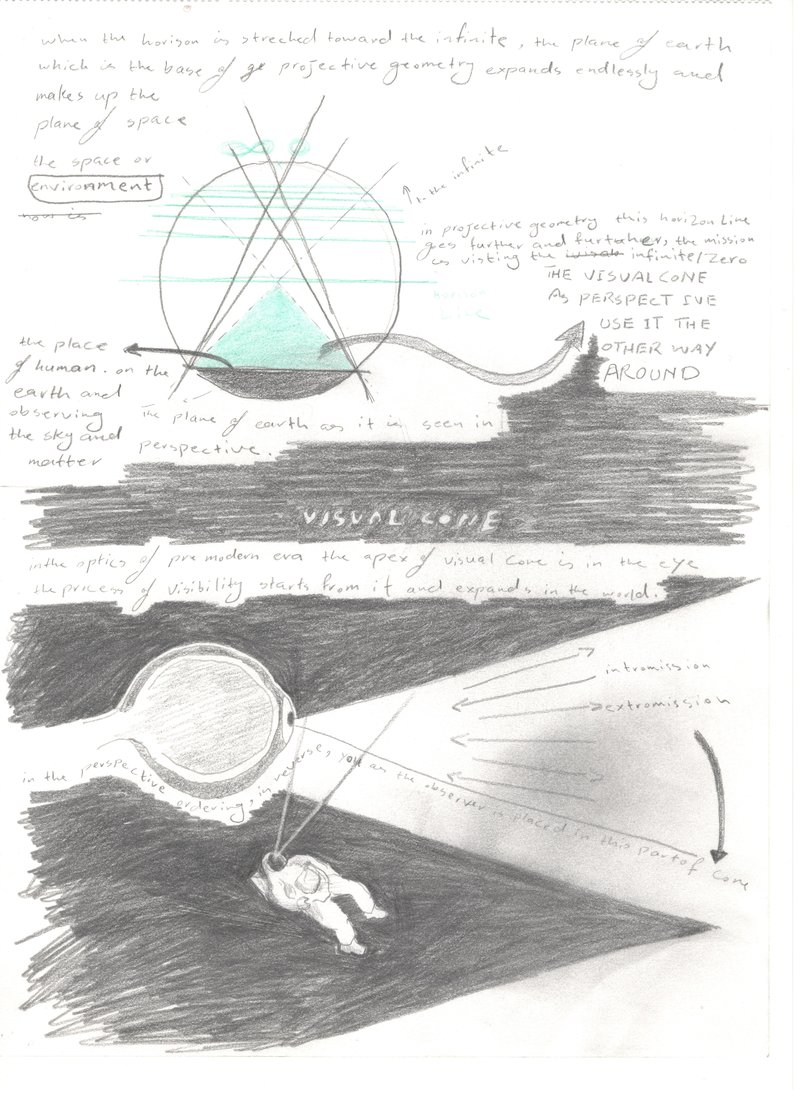 when the horison is streched toward the infinite, the plane of earth
which is the base of ge projective geometry expands endlessly and
makes up the
plane of space
the space or
environment
∞
to the infinite
in projective geometry this horizon line
goes further and furtaher, the mission
is visting the infinite/Zero
THE VISUAL CONE
AS PERSPECTIVE
USE IT THE
OTHER WAY
AROUND
horizon
LINE
the place
of human. on the
earth and
observing
the sky and
matter
The plane of earth as it is seen in
perspective.
VISUAL CONE
in the optics of pre modern era the apex of visual cone is in the eye
the process of visibility starts from it and expands in the world.
intromission
extromission
in the perspective ordering, in reverse, you as the observer is placed in this part of cone